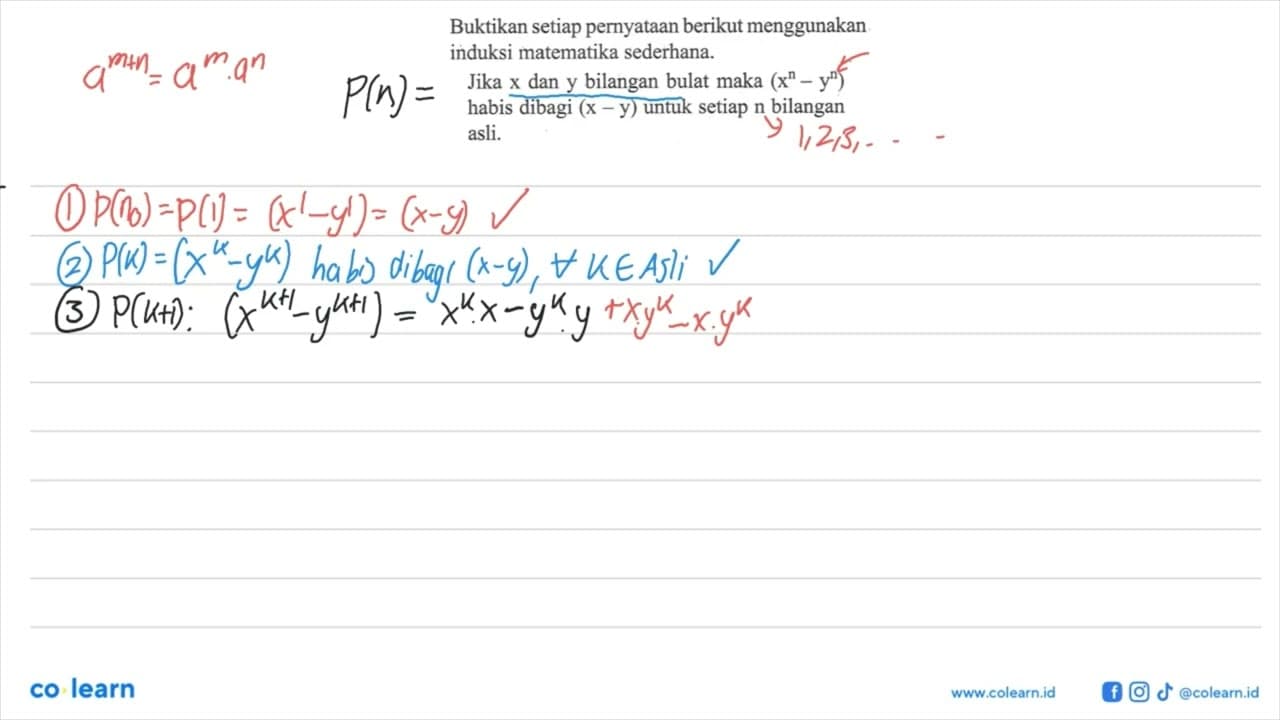 Buktikan setiap pernyataan berikut menggunakan
induksi matematika sederhana.
a^{m+n} = a^m . a^n
P(n) =
Jika x dan y bilangan bulat maka (xⁿ – yⁿ)
habis dibagi (x – y) untuk setiap n bilangan
asli.
1, 2, 3, . - -
① P(n₀) = P(1) = (x¹ – y¹) = (x – y) ✓
② P(k) = (x^k – y^k) habis dibagi (x – y), ∀ k ∈ Asli ✓
③ P(k+1): (x^{k+1} – y^{k+1}) = x^k . x – y^k . y + x.y^k – x . y^k
co learn
www.colearn.id
@colearn.id